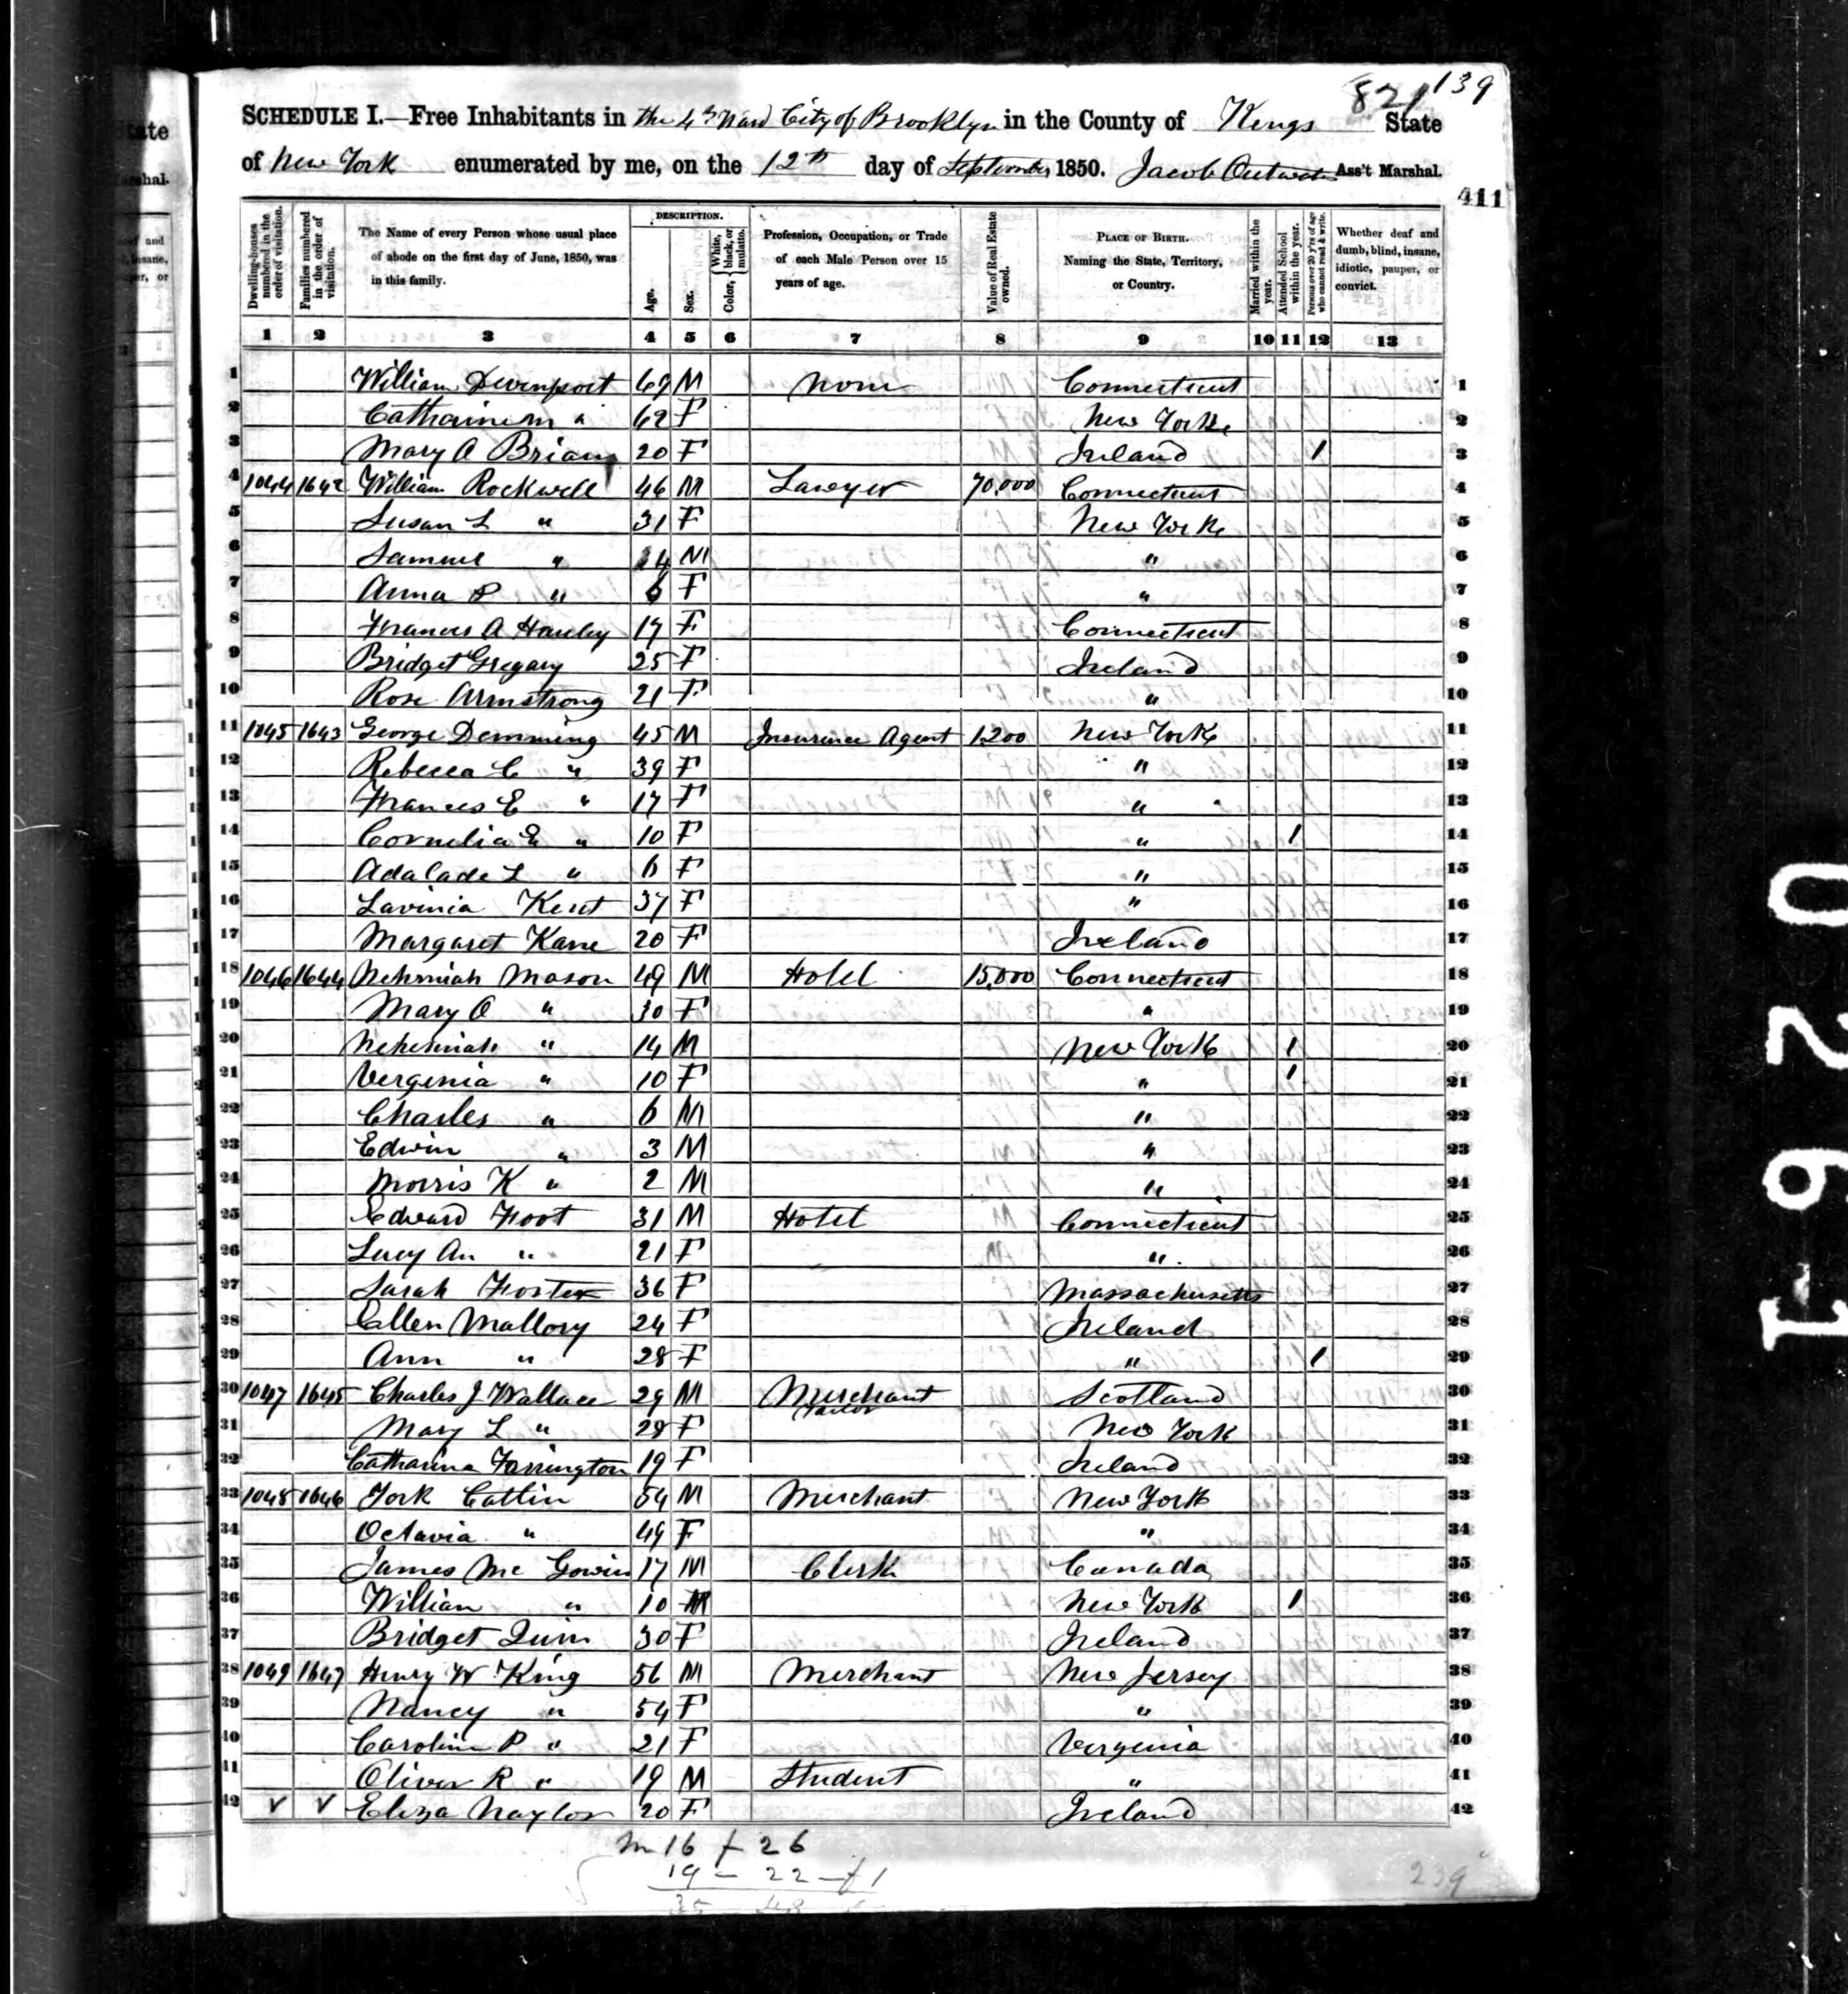 821 139
SCHEDULE I.—Free Inhabitants in the 4th Ward City of Brooklyn in the County of Kings State
of New York enumerated by me, on the 12th day of September 1850. Jacob Ass't Marshal.
411
Dwelling-houses numbered in the order of visitation.
Families numbered in the order of visitation.
The Name of every Person whose usual place of abode on the first day of June, 1850, was in this family.
DESCRIPTION.
Age.
Sex.
Color, {White, black, or mulatto.
Profession, Occupation, or Trade of each Male Person over 15 years of age.
Value of Real Estate owned.
PLACE OF BIRTH. Naming the State, Territory, or Country.
Married within the year.
Attended School within the year.
Persons over 20 y'rs of age who cannot read & write.
Whether deaf and dumb, blind, insane, idiotic, pauper, or convict.
1 2 3 4 5 6 7 8 9 10 11 12 13
1 William Devenport 69 M None Connecticut 1
2 Catharine M " 62 F New York 2
3 Mary A Brian 20 F Ireland 1 3
4 1044 1642 William Rockwell 46 M Lawyer 70,000 Connecticut 4
5 Susan L " 31 F New York 5
6 Samuel " 14 M " 6
7 Anna P " 6 F " 7
8 Frances A Hawley 17 F Connecticut 8
9 Bridget Gregary 25 F Ireland 9
10 Rose Armstrong 21 F " 10
11 1045 1643 George Demming 45 M Insurance Agent 1,200 New York 11
12 Rebecca C " 39 F " 12
13 Frances E " 17 F " 13
14 Cornelia E " 10 F " 1 14
15 Adalade L " 6 F " 15
16 Lavinia Kent 37 F " 16
17 Margaret Kane 20 F Ireland 17
18 1046 1644 Nehmiah Mason 49 M Hotel 15,000 Connecticut 18
19 Mary O " 30 F " 19
20 Nehemiah " 14 M New York 1 20
21 Verginia " 10 F " 1 21
22 Charles " 6 M " 22
23 Edwin " 3 M " 23
24 Morris K " 2 M " 24
25 Edward Foot 31 M Hotel Connecticut 25
26 Lucy An " 21 F " 26
27 Sarah Foster 36 F Massachusetts 27
28 Ellen Mallory 24 F Ireland 28
29 Ann " 28 F " 1 29
30 1047 1645 Charles J Wallace 29 M Merchant Tailor Scotland 30
31 Mary L " 28 F New York 31
32 Catharina Farrington 19 F Ireland 32
33 1048 1646 York Catlin 54 M Merchant New York 33
34 Octavia " 49 F " 34
35 James Mc Gowin 17 M Clerk Canada 35
36 William " 10 M New York 1 36
37 Bridget Quin 30 F Ireland 37
38 1049 1647 Henry W King 56 M Merchant New Jersey 38
39 Nancy " 54 F " 39
40 Caroline P " 21 F Verginia 40
41 Oliver R " 19 M Student " 41
42 v v Eliza Naylor 20 F Ireland 42
m 16 f 26
19 – 22 – f 1
35 48
239
0 2 9 - 1